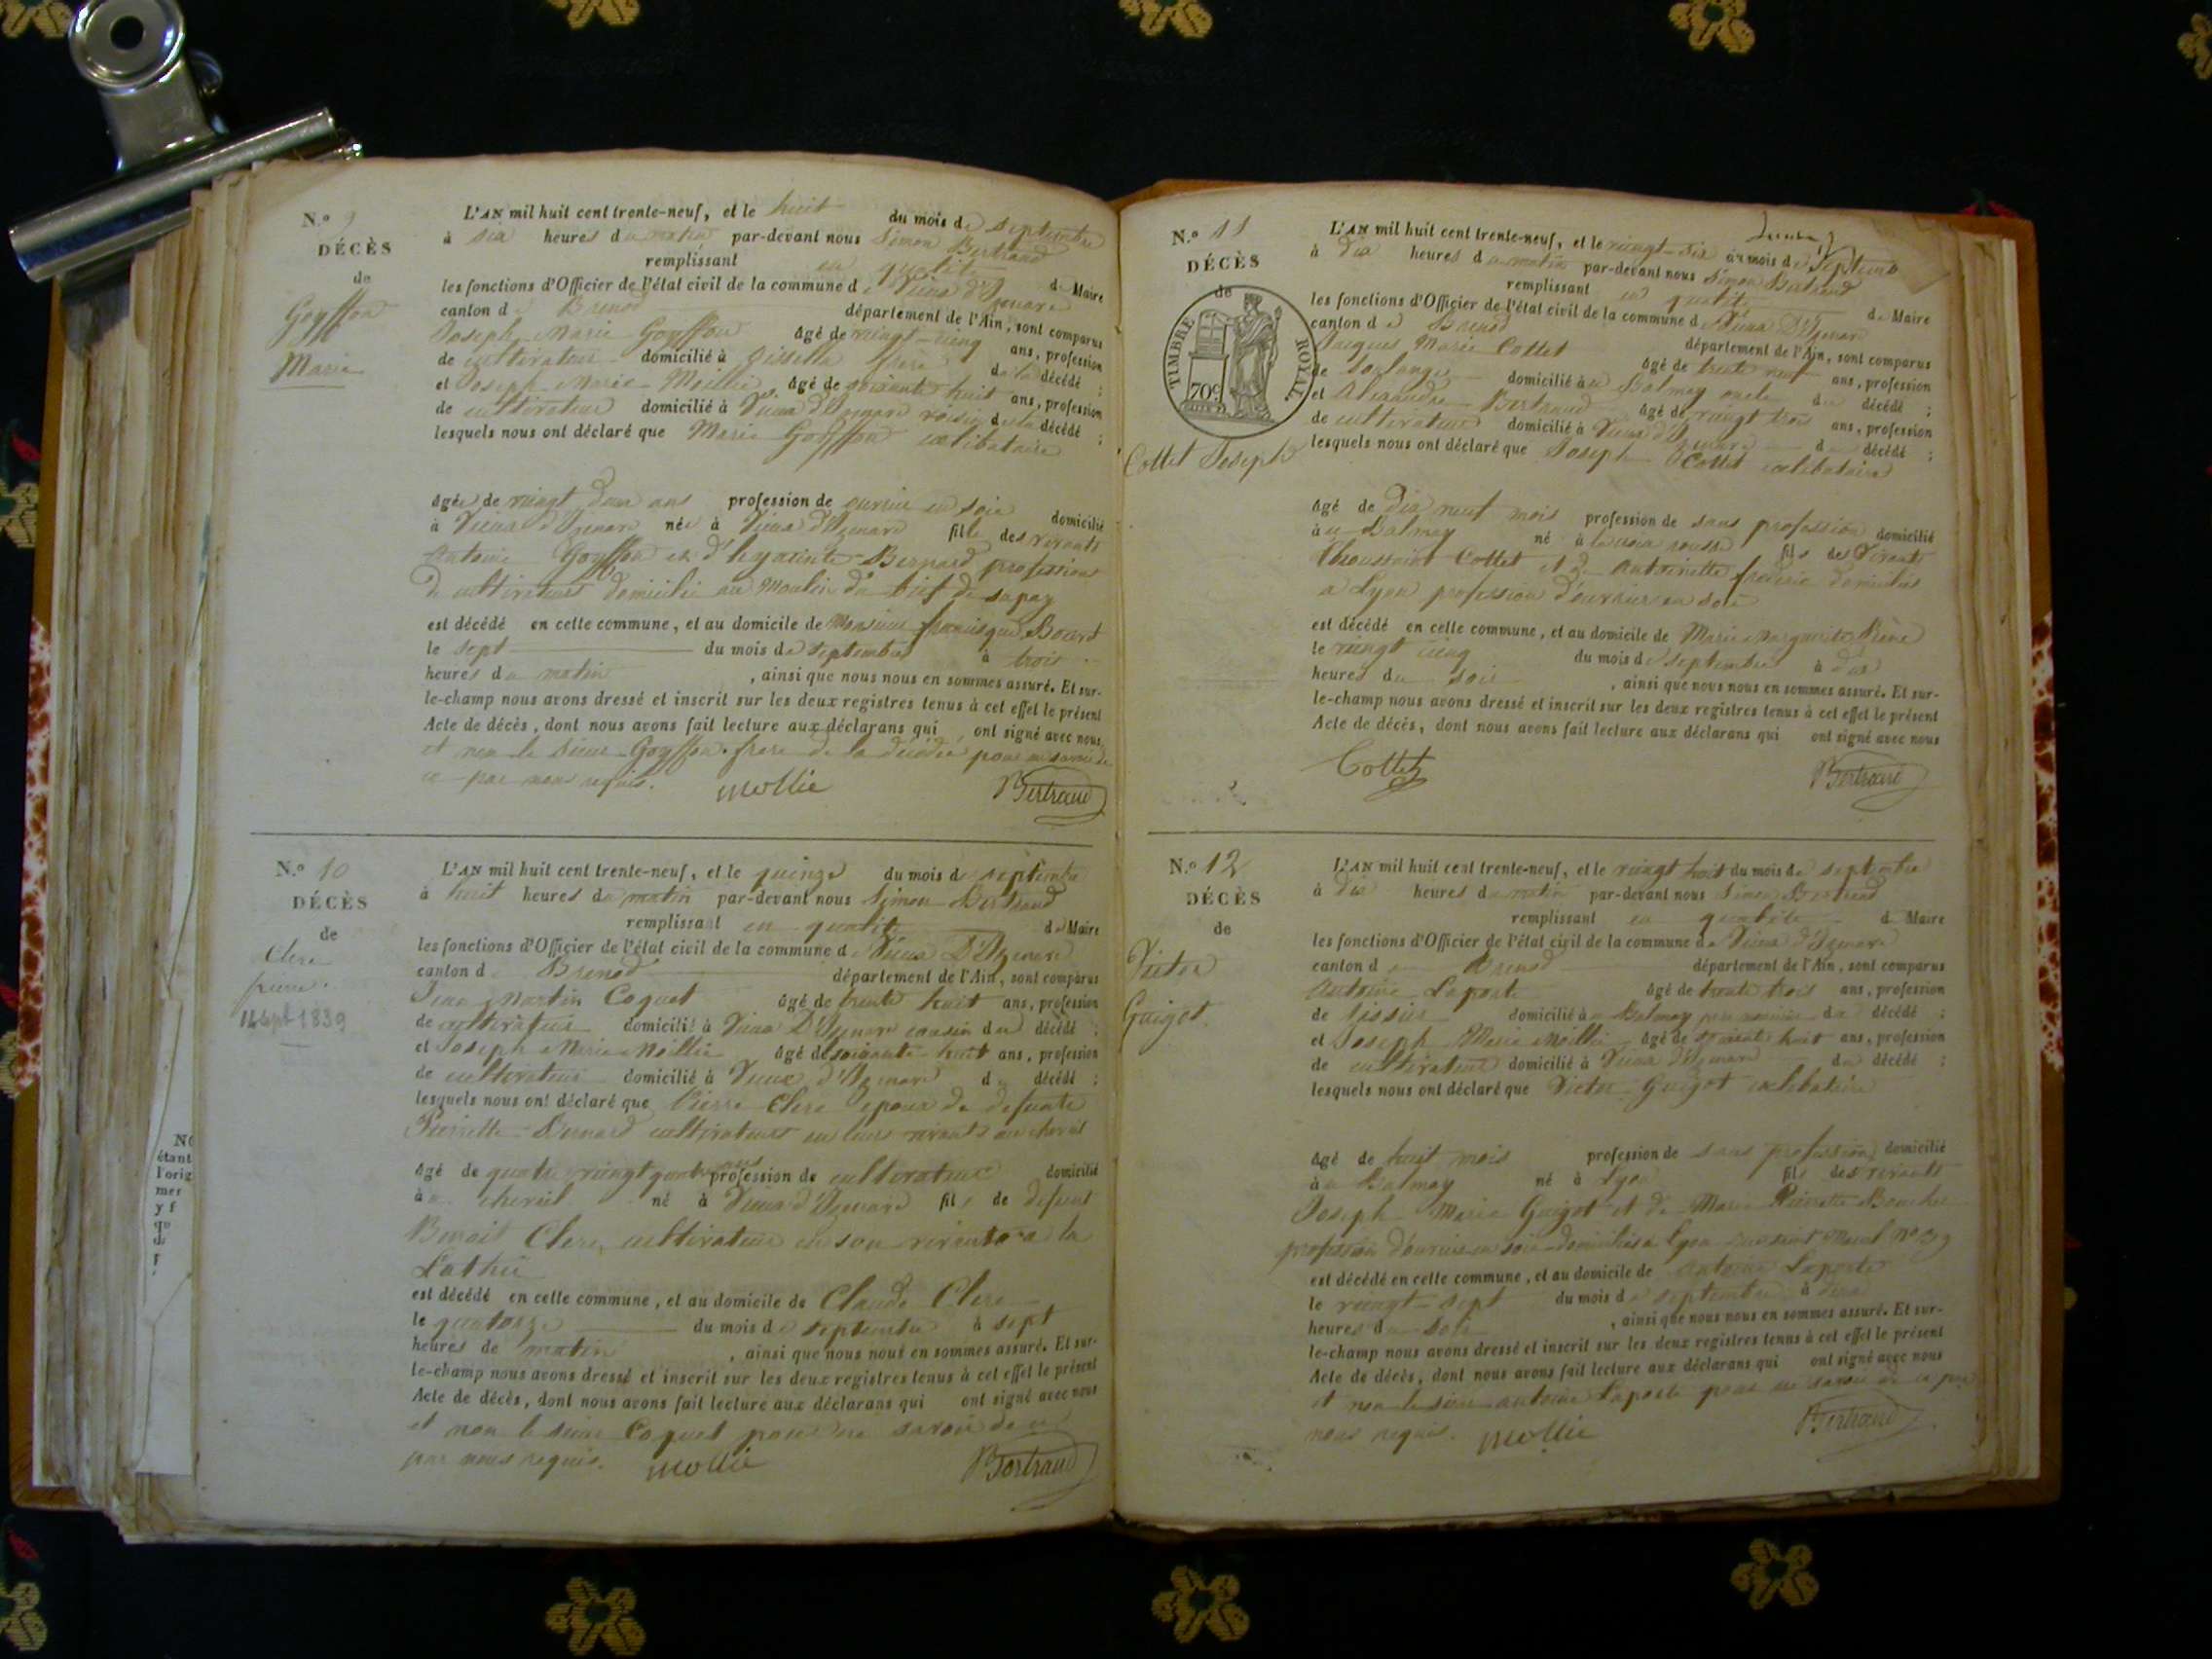 N.º 9
DÉCÈS
de
Goyffon
Marie
L'AN mil huit cent trente-neuf, et le huit du mois de septembre
à six heures du matin par-devant nous Simon Bertrand
remplissant en qualité de Maire
les fonctions d'Officier de l'état civil de la commune de Vieux d'Izenave
canton de Brenod département de l'Ain, sont comparus
Joseph Marie Goyffon âgé de vingt-cinq ans, profession
de cultivateur domicilié à frère de la décédé ;
et Joseph Marie Moillie âgé de soixante huit ans, profession
de cultivateur domicilié à Vieux d'Izenave voisin de la décédé ;
lesquels nous ont déclaré que Marie Goyffon celibataire
âgée de vingt deux ans profession de ouvrière en soie domicilié
à Vieux d'Izenave née à Vieux d'Izenave fille des vivants
Antoine Goyffon et d'hyacinte Bernard profession
de cultivateurs domicilié au Moulin du bief de
est décédé en cette commune, et au domicile de Monsieur francisque
le sept du mois de septembre à trois
heures du matin, ainsi que nous nous en sommes assuré. Et sur-
le-champ nous avons dressé et inscrit sur les deux registres tenus à cet effet le présent
Acte de décès, dont nous avons fait lecture aux déclarans qui ont signé avec nous
et non le sieur Goyffon frere de la décédée pour ne savoir de
ce par nous requis. mollie Bertrand
N.º 10
DÉCÈS
de
Clerc
pierre
14 Spt 1839
L'AN mil huit cent trente-neuf, et le quinze du mois de septembre
à huit heures du matin par-devant nous Simon Bertrand
remplissant en qualité de Maire
les fonctions d'Officier de l'état civil de la commune de Vieux D'Izenave
canton de Brenod département de l'Ain, sont comparus
Jean Martin Coquet âgé de trente huit ans, profession
de cultivateur domicilié à Vieux D'Izenave cousin du décédé ;
et Joseph Marie Moillie âgé de soixante huit ans, profession
de cultivateur domicilié à Vieux d'Izenave d décédé ;
lesquels nous ont déclaré que Pierre Clerc epoux de defunte
Pierrette Bernard cultivateurs en leurs vivants au
âgé de quatre vingt quatre ans profession de cultivateur domicilié
à né à Vieux d'Izenave fils de defunt
Benoit Clerc, cultivateur en son vivant a la
est décédé en cette commune, et au domicile de Claude Clerc
le quatorze du mois de septembre à sept
heures de matin, ainsi que nous nous en sommes assuré. Et sur-
le-champ nous avons dressé et inscrit sur les deux registres tenus à cet effet le présent
Acte de décès, dont nous avons fait lecture aux déclarans qui ont signé avec nous
et non le sieur Coquet pour ne savoir de ce
par nous requis. mollie Bertrand
N.º 11
DÉCÈS
de
TIMBRE ROYAL
70c
Cottet Joseph
L'AN mil huit cent trente-neuf, et le vingt-six du mois de Septembre
à dix heures du matin par-devant nous Simon Bertrand
remplissant en qualité de Maire
les fonctions d'Officier de l'état civil de la commune de Vieux D'Izenave
canton de Brenod département de l'Ain, sont comparus
Jacques Marie Cottet âgé de trente neuf ans, profession
de boulanger domicilié à Balmay oncle du décédé ;
et Alexandre Bertrand âgé de vingt trois ans, profession
de cultivateur domicilié à Vieux d'Izenave d décédé ;
lesquels nous ont déclaré que Joseph Cottet celibataire
âgé de dix neuf mois profession de sans profession domicilié
à Balmay né à la croix rousse fils des Vivants
Thoussaint Cottet et de Antoinette domiciliés
a Lyon profession d'ouvriers en soie
est décédé en cette commune, et au domicile de Marie Marguerite
le vingt cinq du mois de septembre à dix
heures du soir, ainsi que nous nous en sommes assuré. Et sur-
le-champ nous avons dressé et inscrit sur les deux registres tenus à cet effet le présent
Acte de décès, dont nous avons fait lecture aux déclarans qui ont signé avec nous
Cottet Bertrand
N.º 12
DÉCÈS
de
Victor
Guigot
L'AN mil huit cent trente-neuf, et le vingt huit du mois de septembre
à dix heures du matin par-devant nous Simon Bertrand
remplissant en qualité de Maire
les fonctions d'Officier de l'état civil de la commune de Vieux d'Izenave
canton de Brenod département de l'Ain, sont comparus
Antoine Laporte âgé de trente trois ans, profession
de tissier domicilié à Balmay père nourricier du décédé ;
et Joseph Marie Moillie âgé de soixante huit ans, profession
de cultivateur domicilié à Vieux d'Izenave du décédé ;
lesquels nous ont déclaré que Victor Guigot celibataire
âgé de huit mois profession de sans profession domicilié
à Balmay né à Lyon fils des vivants
Joseph Marie Guigot et de Marie Pierrette
profession d'ouvriers en soie domiciliés a Lyon
est décédé en cette commune, et au domicile de Antoine Laporte
le vingt-sept du mois de septembre à
heures du soir, ainsi que nous nous en sommes assuré. Et sur-
le-champ nous avons dressé et inscrit sur les deux registres tenus à cet effet le présent
Acte de décès, dont nous avons fait lecture aux déclarans qui ont signé avec nous
et non le sieur antoine Laporte pour ne savoir de ce par
nous requis. mollie Bertrand